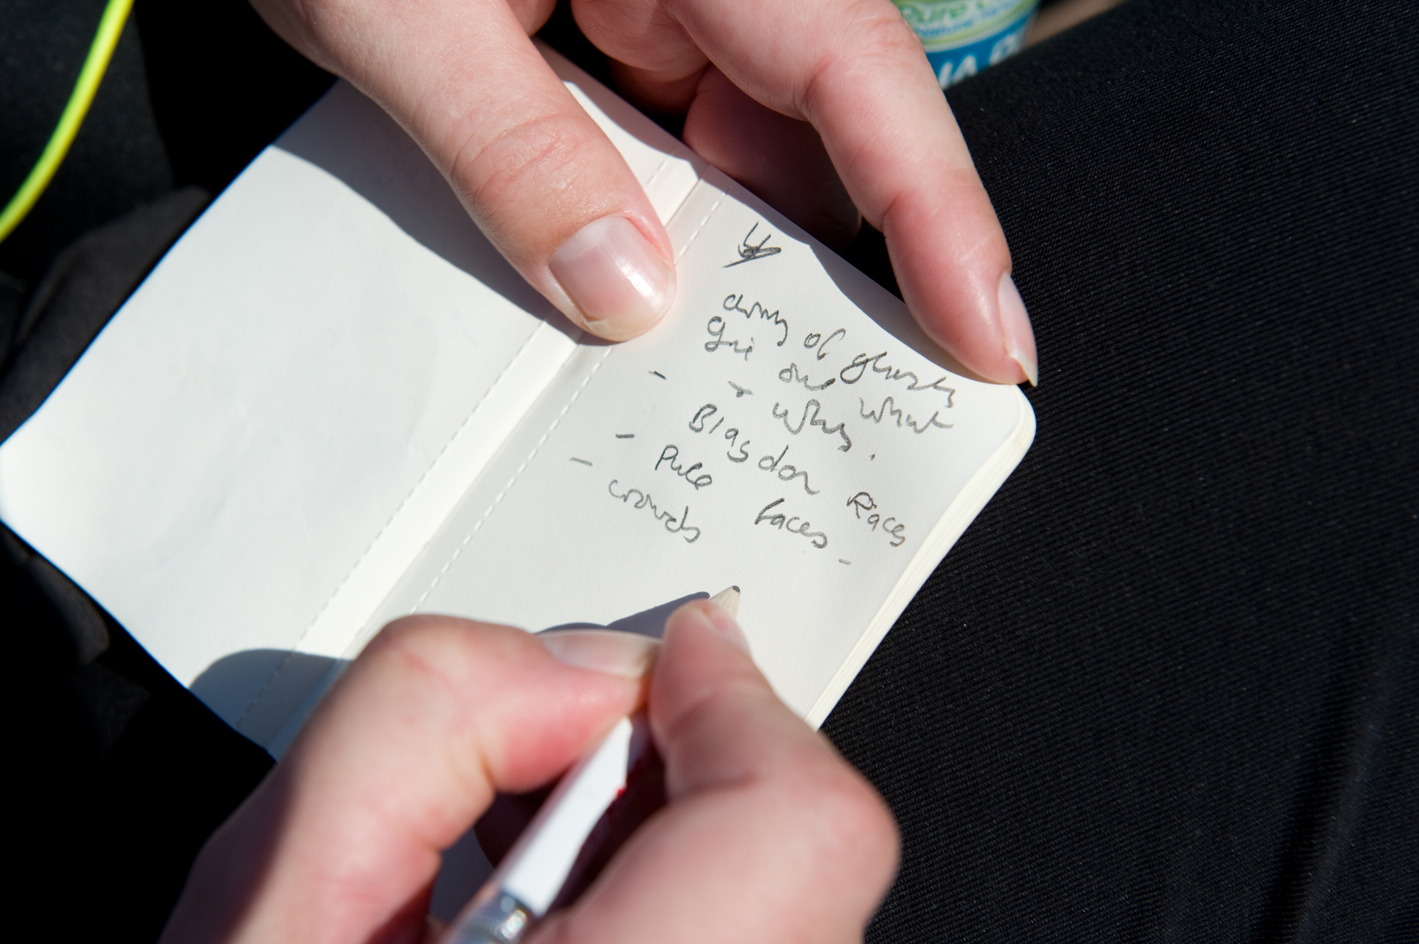 army of ghosts
give out what
- + why.
Blagdon Races
- Pull faces -
- crowds
Pure